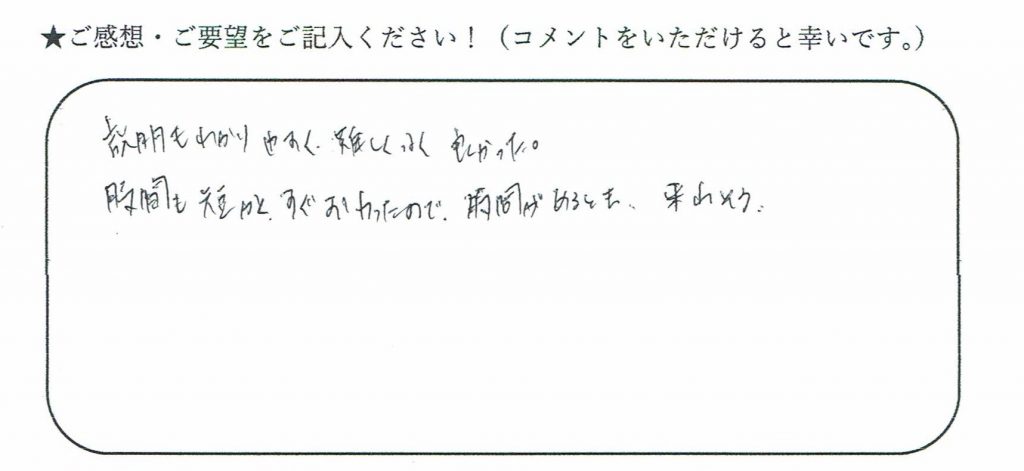 ★ご感想・ご要望をご記入ください！（コメントをいただけると幸いです。）
説明もわかりやすく、難しくなく 良かった。
時間も短かく、すぐおわったので、時間があるとき、来れそう、